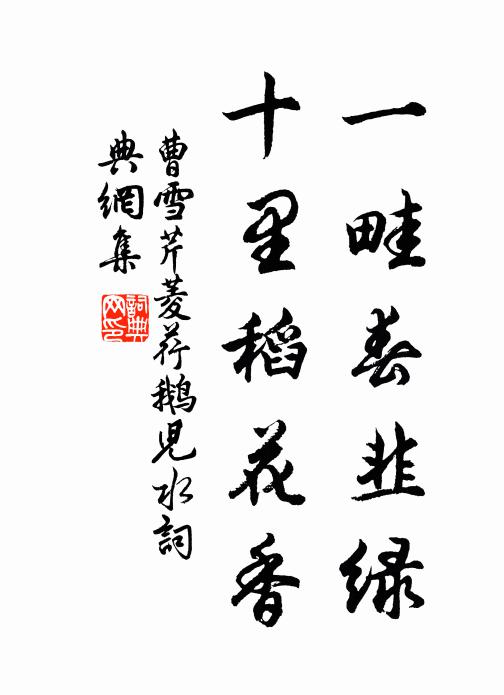 一畦春韭绿
十里稻花香
曹雪芹菱荇鹅児水詞
典網集
詞典
网印